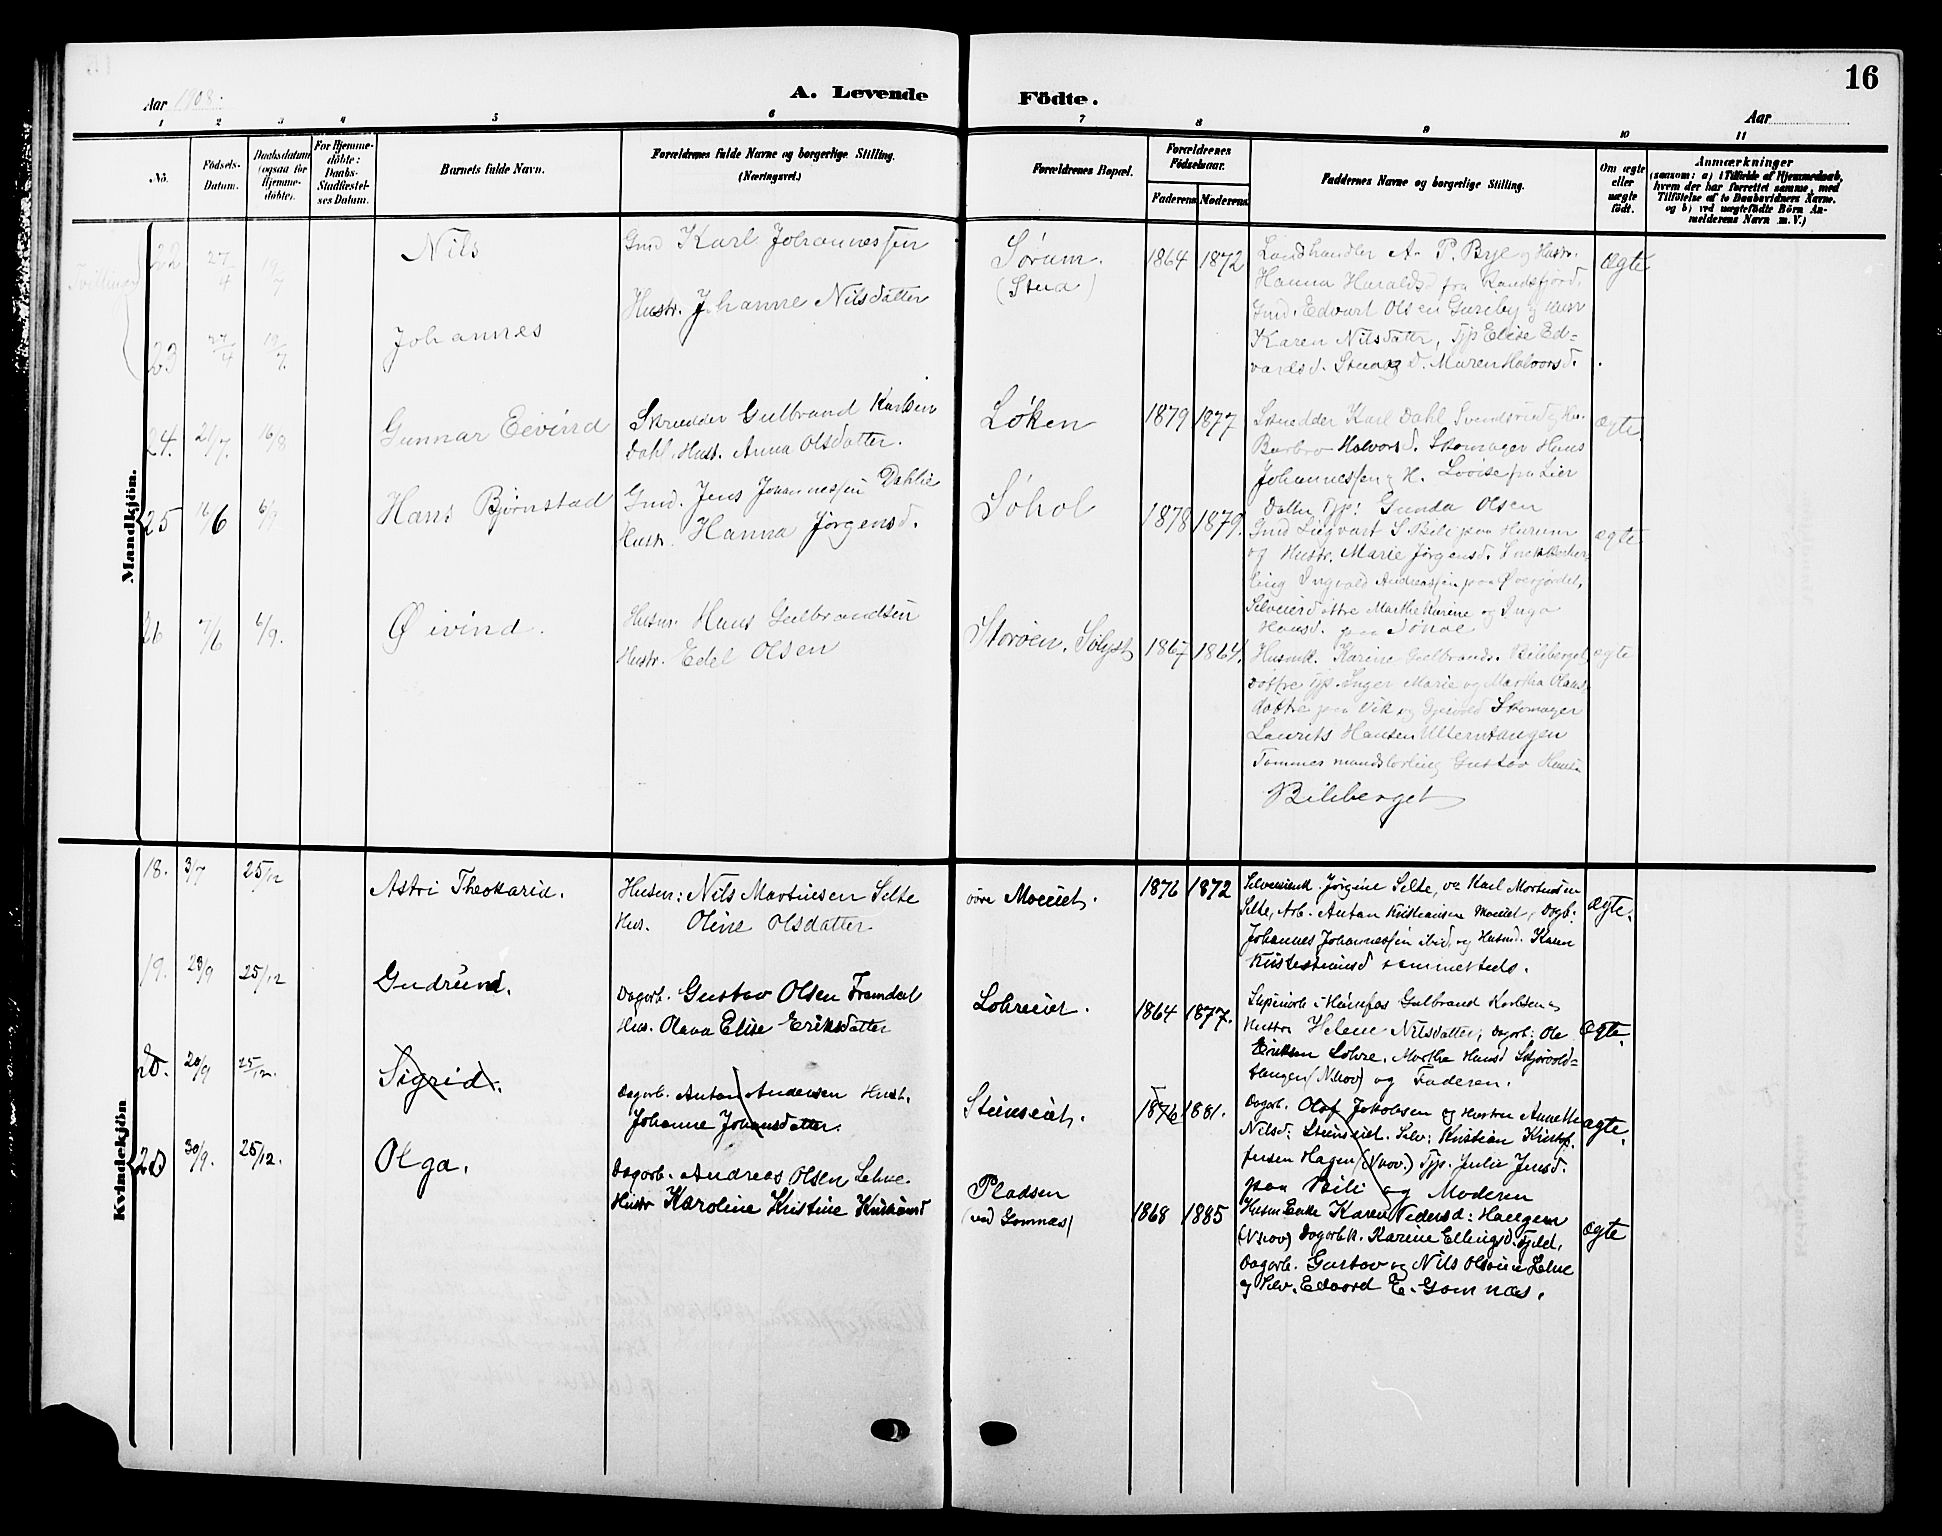 16
Aar 1908.
A. Levende Födte.
Aar
1 2 3 4 5 6 7 8 9 10 11
Nö.
Födsels-
Datum.
Daabsdatum
(ogsaa for
Hjemme-
döbte).
For Hjemme-
döbte:
Daabs-
Stadfæstel-
ses Datum.
Barnets fulde Navn.
Forældrenes fulde Navne og borgerlige Stilling.
(Næringsvei.)
Forældrenes Bopæl.
Forældrenes
Födselsaar.
Faderens Moderens
Faddernes Navne og borgerlige Stilling.
Om ægte
eller
uægte
födt.
Anmærkninger
(saasom: a) i Tilfælde af Hjemmedaab,
hvem der har forrettet samme, med
Tilföielse af to Daabsvidners Navne.
og b) ved uægtefödte Börn An-
melderens Navn m. V.)
Mandkjön.
Tvillinger
22 27/4 19/7 Nils
Gmd Karl Johannessen
Hustr. Johanne Nilsdatter
Sørum.
(Stena)
1864 1872
Landhandler A. P. Bye og Hustr.
Hanna Haralds. fra Randsfjord,
Gmd. Edvart Olsen Gureby og
Karen Nilsdatter, Tjp Elise Ed-
vardsd. D. Maren Halvorsd.
ægte
23 27/4 19/7 Johannes
24. 21/7. 16/8 Gunnar Eivind
Skrædder Gulbrand Karlsen
Dahl, Hust. Anna Olsdatter.
Løken
1879 1877
Skrædder Karl Dahl
Barbro Halvorsd. Skomager Hans
Johannessen og H. Lovise fra Lier
Datter Tjp: Gunda Olsen
ægte.
25 16/6 6/9 Hans Bjørnstad
Gmd. Jens Johannessen Dahlie
Hustr. Hanna Jørgensd.
Søhol
1878 1879.
Gmd Sigvart S Bili paa Hurum
og Hustr. Marie Jørgensd.
ling Ingvald Andreassen paa Øverjordet,
Marthe Karine og Inga
Hansd. paa Søhol
ægte
26 7/6 6/9. Øivind.
Husm. Hans Gulbrandsen
Hustr. Edel Olsen
Storøen, Sølyst
1867 1864.
Husmk. Karine Gulbrands. Biliberget,
Døttre Tjp. Inger Marie og Martha Olaus-
døttre paa Vik og Skomager
Laurits Hansen Ulterntangen
Tømmermandslærling Gustav Hansen
Biliberget
ægte
Kvindekjön
18. 3/7 25/12 Astri Theokarid.
Husm: Nils Martinsen Selte
Hus. Oline Olsdatter.
øvre Moeiet.
1876 1872
Jørgine Selte, og Karl Mortinsen
Selte, Arb. Anton Kristiansen Moeiet, Dagb.
Johannes Johannessen ibid. og Husmd. Karen
Kristiansd sammesteds.
ægte.
19. 29/9 25/12 Gudrund.
Dagarb. Gustav Olsen Framdal
Hus. Olava Elise Eriksdatter
Lohreeiet.
1864 1877.
Hønefos Gulbrand Karlsen og
Hustru Helene Nilsdatter, Dagarb: Ole
Eriksen Lohre, Marthe Hansd Skjørvold-
tangen (N.hov) og Faderen.
ægte,
20. 20/9 25/12. Sigrid.
Dagarb. Anton Andersen Hust.
Johanne Johansdatter.
Steinseiet.
1876 1881.
Dagarb. Olaf Jakobsen og Hustru Anne
Nilsd: Steinseiet. Selv: Kristian Kristof-
fersen Hagen (N.hov.) Tjp. Julie Jensd.
paa Bili og Moderen
ægte.
20 30/9. 25/12. Olga.
Dagarb. Andreas Olsen Lehne.
Hustr Karoline Kristine Kristiansd
Pladsen
(ved Gomnæs)
1868 1885
Husm Enke Karen Pedersd: Haugen
(N.hov) Dagarbk. Karine Ellingsd. Fjeld,
Dagarb. Gustav og Nils Olsen Lehne
og Selv. Edvard E. Gomnæs.
ægte